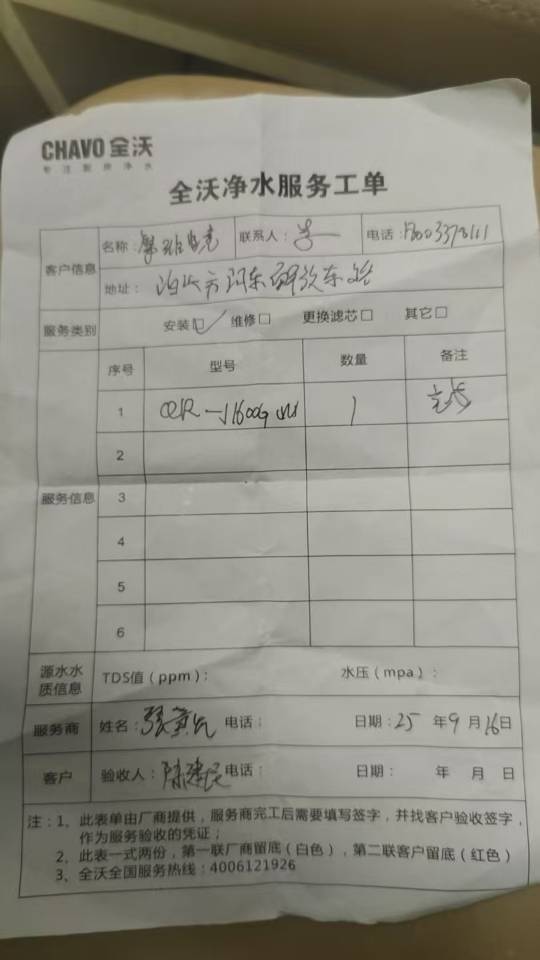 CHAVO 全沃
专注厨房净水
全沃净水服务工单
客户信息
名称： 联系人： 电话：
地址：
服务类别 安装☑ 维修□ 更换滤芯□ 其它□
服务信息
序号 型号 数量 备注
1 1
2
3
4
5
6
源水水质信息 TDS值（ppm）： 水压（mpa）：
服务商 姓名：张 电话： 日期：25 年 9 月 16 日
客户 验收人：陈建民 电话： 日期： 年 月 日
注：1、此表单由厂商提供，服务商完工后需要填写签字，并找客户验收签字，
作为服务验收的凭证；
2、此表一式两份，第一联厂商留底（白色），第二联客户留底（红色）
3、全沃全国服务热线：4006121926